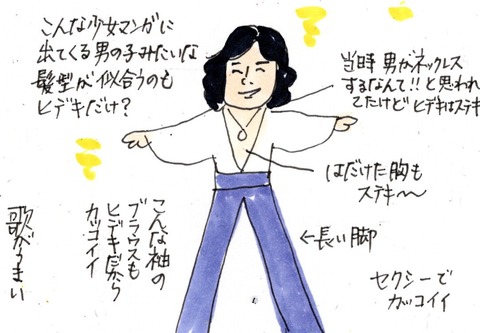 こんな少女マンガに
出てくる男の子みたいな
髪型が似合うのも
ヒデキだけ?
当時 男がネックレス
するなんて!!と思われ
てたけど ヒデキはステキ
はだけた胸も
ステキ〜
←長い脚
セクシーで
カッコイイ
こんな袖の
ブラウスも
ヒデキだから
カッコイイ
歌がうまい